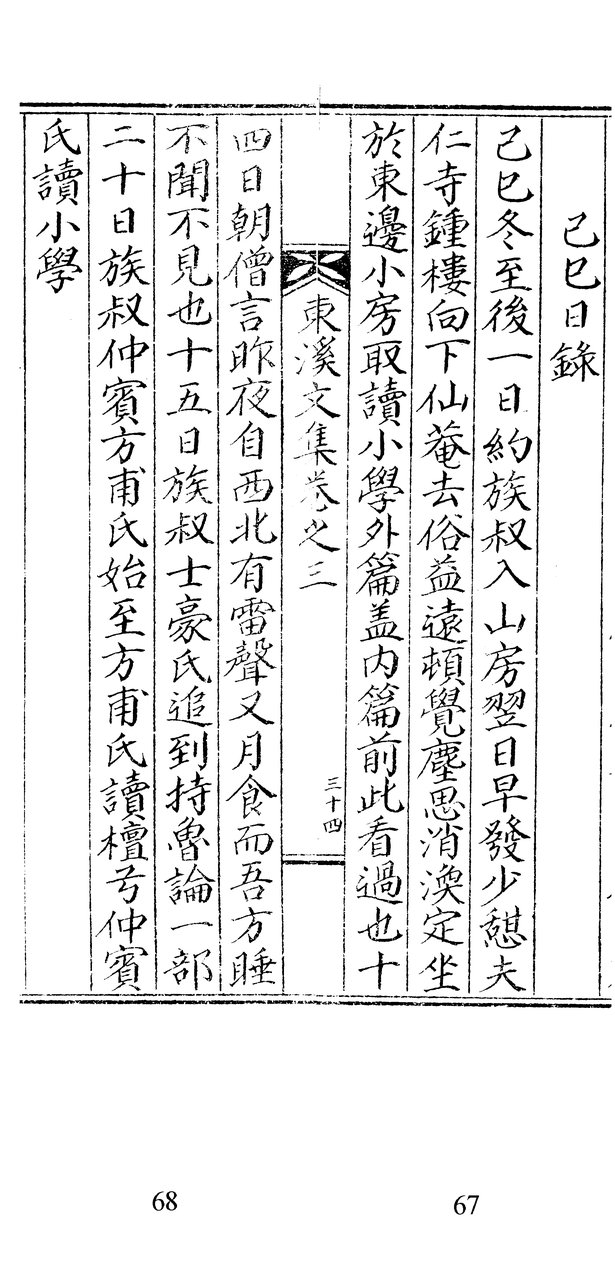 己巳日錄
己巳冬至後一日約族叔入山房翌日早發少憇夫
仁寺鍾樓向下仙菴去俗益遠頓覺塵思消渙定坐
於東邊小房取讀小學外篇盖內篇前此看過也十
東溪文集卷之三
三十四
四日朝僧言昨夜自西北有雷聲又月食而吾方睡
不聞不見也十五日族叔士豪氏追到持魯論一部
二十日族叔仲賓方甫氏始至方甫氏讀檀弓仲賓
氏讀小學
68
67